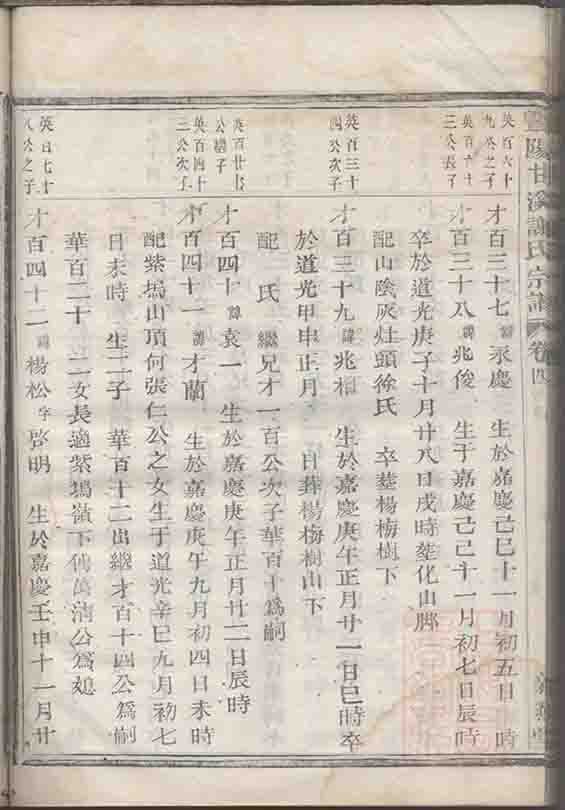 暨陽甘溪謝氏宗譜 卷四
英百六十
九公之子
才百三十七 諱 永慶 生於嘉慶己巳十一月初五日 時
英百六十
三公長子
才百三十八 諱 兆俊 生于嘉慶己巳十一月初七日辰時
卒於道光庚子十月廿八日戌時葬化山脚
配山陰灰灶頭徐氏 卒葬楊梅樹下
英百三十
四公次子
才百三十九 諱 兆相 生於嘉慶庚午正月廿一日巳時卒
於道光甲申正月 日葬楊梅樹山下
配 氏 繼兄才一百公次子華百十爲嗣
公繼子
才百四十 諱 袁一 生於嘉慶庚午正月廿二日辰時
英百四十
三公次子
才百四十一 諱 才蘭 生於嘉慶庚午九月初四日未時
配紫塢山頂何張仁公之女生于道光辛巳九月初七
日未時 生二子 華百十二出繼才百十四公爲嗣
華百二十 二女長適紫塢嶺下傅萬清公爲媳
英百七十
八公之子
才百四十二 諱 楊松 字 啓明 生於嘉慶壬申十一月廿